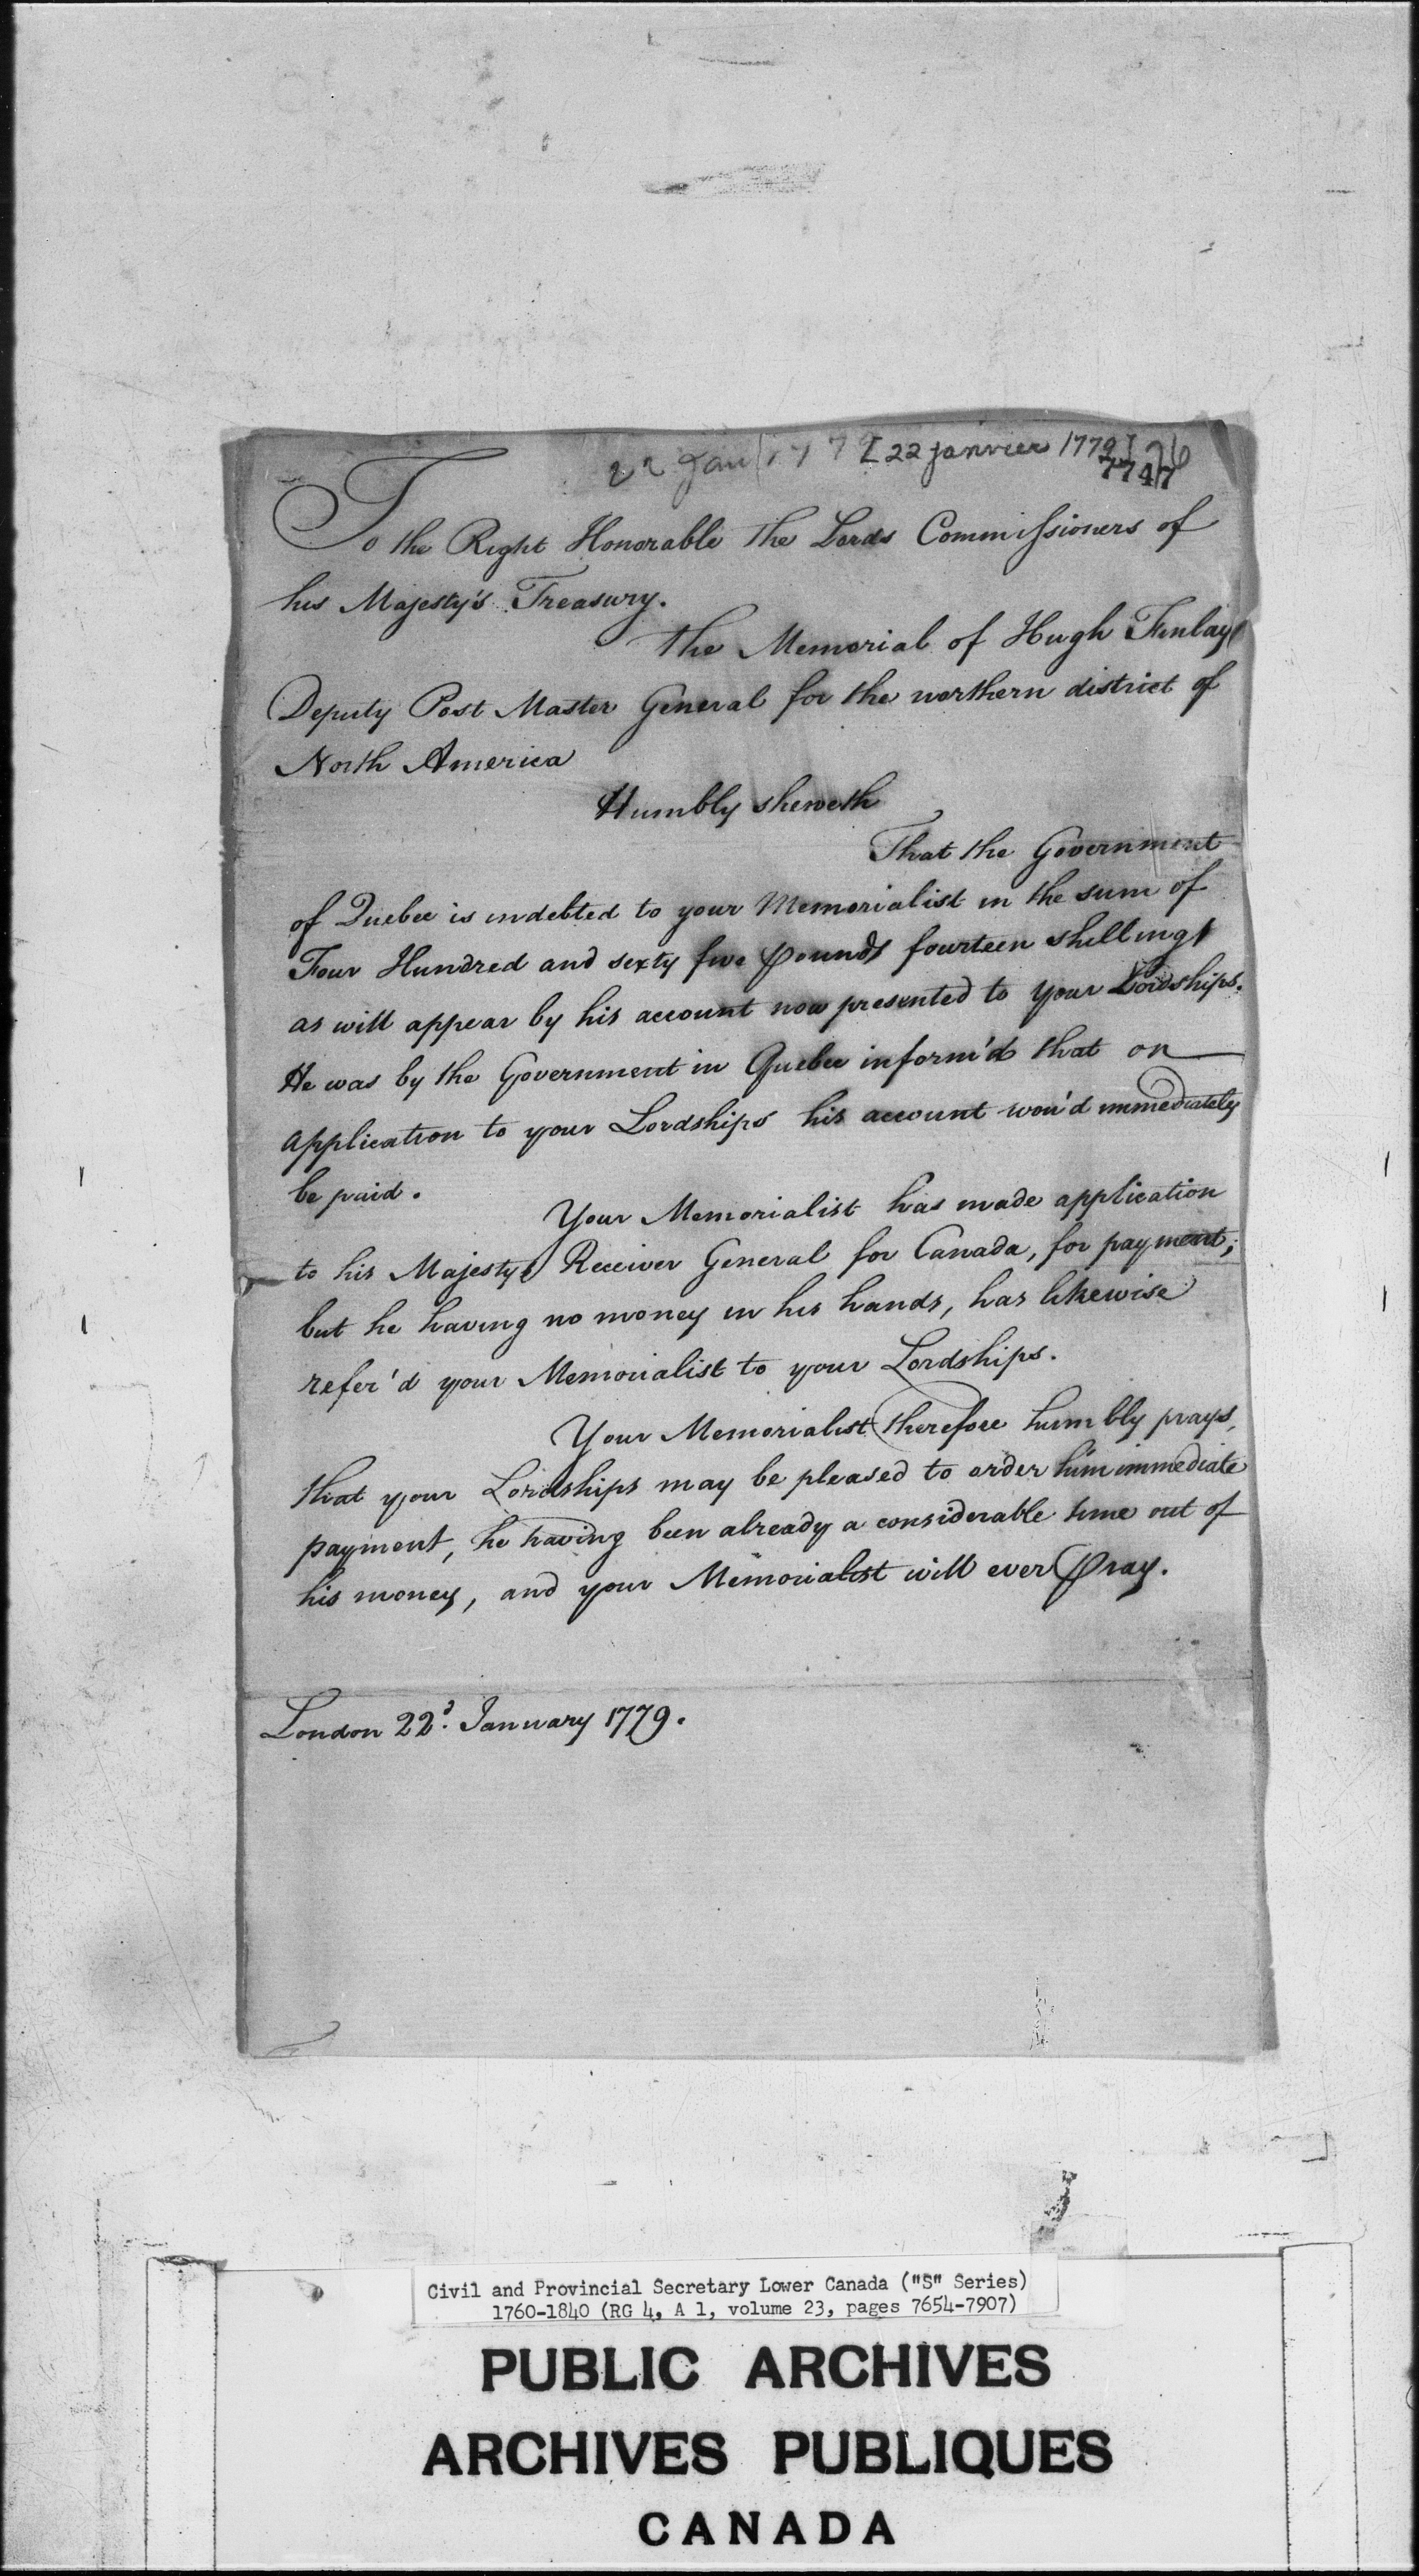 22 Jan 1779 [22 janvier 1779] 26
7747
To the Right Honorable The Lords Commissioners of
his Majesty's Treasury.
The Memorial of Hugh Finlay
Deputy Post Master General for the northern district of
North America
Humbly sheweth
That the Government
of Quebec is indebted to your Memorialist in the sum of
Four Hundred and sixty five pounds fourteen shillings
as will appear by his account now presented to your Lordships.
He was by the Government in Quebec inform'd that on
application to your Lordships his account wou'd immediately
be paid.
Your Memorialist has made application
to his Majestys Receiver General for Canada, for payment;
but he having no money in his hands, has likewise
refer'd your Memorialist to your Lordships.
Your Memorialist therefore humbly prays,
that your Lordships may be pleased to order him immediate
payment, he having been already a considerable time out of
his money, and your Memorialist will ever pray.
London 22d. January 1779.
Civil and Provincial Secretary Lower Canada ("S" Series)
1760-1840 (RG 4, A 1, volume 23, pages 7654-7907)
PUBLIC ARCHIVES
ARCHIVES PUBLIQUES
CANADA